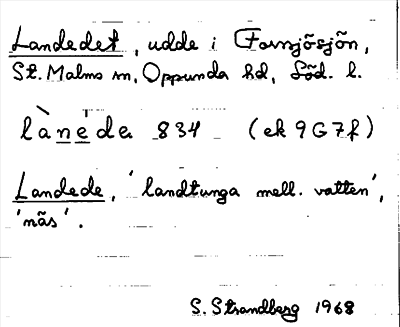 Landedet, udde i Farnsjösjön,
St. Malms sn, Oppunda hd, Söd. l.
lànèda 834 (ek 9G7f)
Landede, 'landtunga mell. vatten',
'näs'.
S. Strandberg 1968